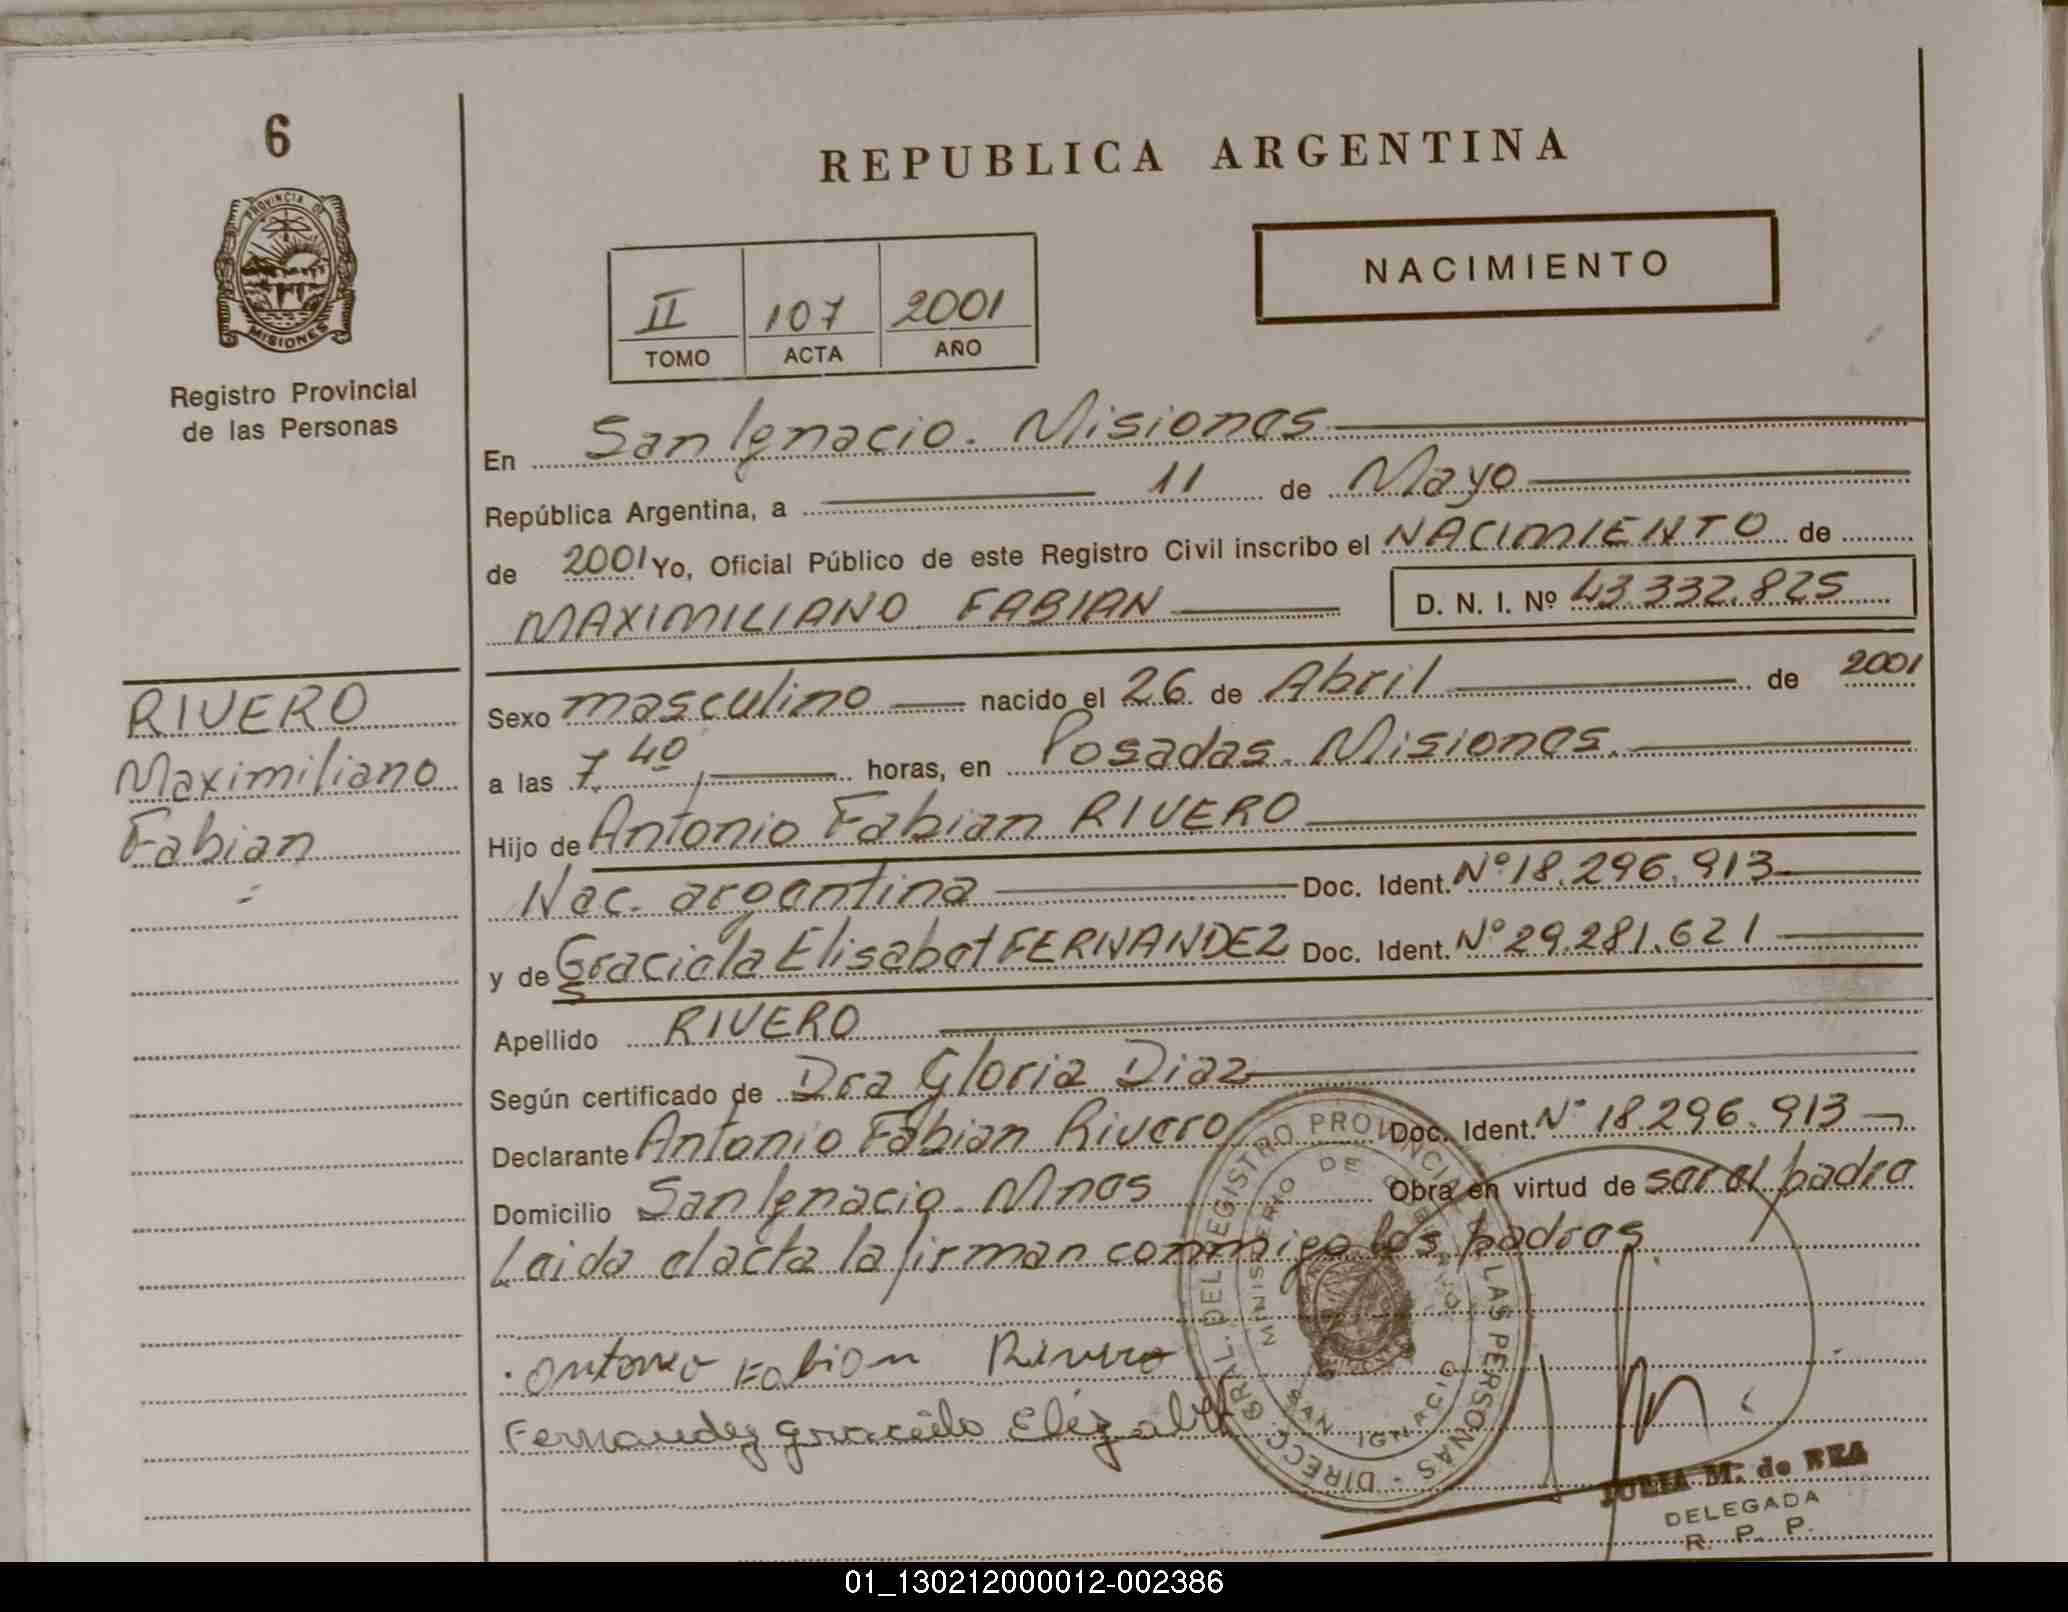 6
PROVINCIA DE
MISIONES
Registro Provincial
de las Personas
REPUBLICA ARGENTINA
NACIMIENTO
II 107 2001
TOMO ACTA AÑO
En San Ignacio. Misiones
República Argentina, a 11 de Mayo
de 2001 Yo, Oficial Público de este Registro Civil inscribo el NACIMIENTO de
MAXIMILIANO FABIAN D. N. I. Nº 43.332.825
RIVERO
Maximiliano
Fabian
Sexo masculino nacido el 26 de Abril de 2001
a las 7.40 horas, en Posadas. Misiones.
Hijo de Antonio Fabian RIVERO
Nac. argentina Doc. Ident. Nº 18.296.913
y de Graciela Elisabet FERNANDEZ Doc. Ident. Nº 29.281.621
Apellido RIVERO
Según certificado de Dra Gloria Diaz
Declarante Antonio Fabian Rivero Doc. Ident. Nº 18.296.913
Domicilio San Ignacio. Mnes Obra en virtud de ser el padre
Leida el acta la firman conmigo los padres.
Antonio Fabian Rivero
Fernandez Graciela Elizabet
DIRECC. GRAL. DEL REGISTRO PROVINCIAL DE LAS PERSONAS
MINISTERIO DE GOBIERNO
SAN IGNACIO
JULIA M. de REA
DELEGADA
R. P. P.
01_130212000012-002386